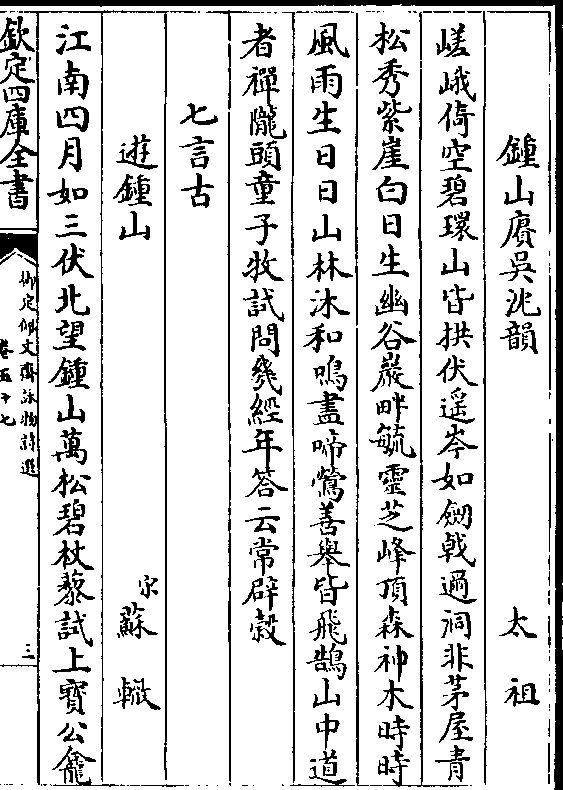 鍾山賡吳沈韻
太祖
嵯峨倚空碧環山皆拱伏遥岑如劒戟過洞非茅屋青
松秀紫崖白日生幽谷巖畔毓靈芝峰頂森神木時時
風雨生日日山林沐和鳴盡啼鶯善舉皆飛鵠山中道
者禪隴頭童子牧試問幾經年答云常辟穀
七言古
遊鍾山
宋
蘇轍
江南四月如三伏北望鍾山萬松碧杖藜試上寶公龕
欽定四庫全書
御定佩文齋詠物詩選
卷五十七
三